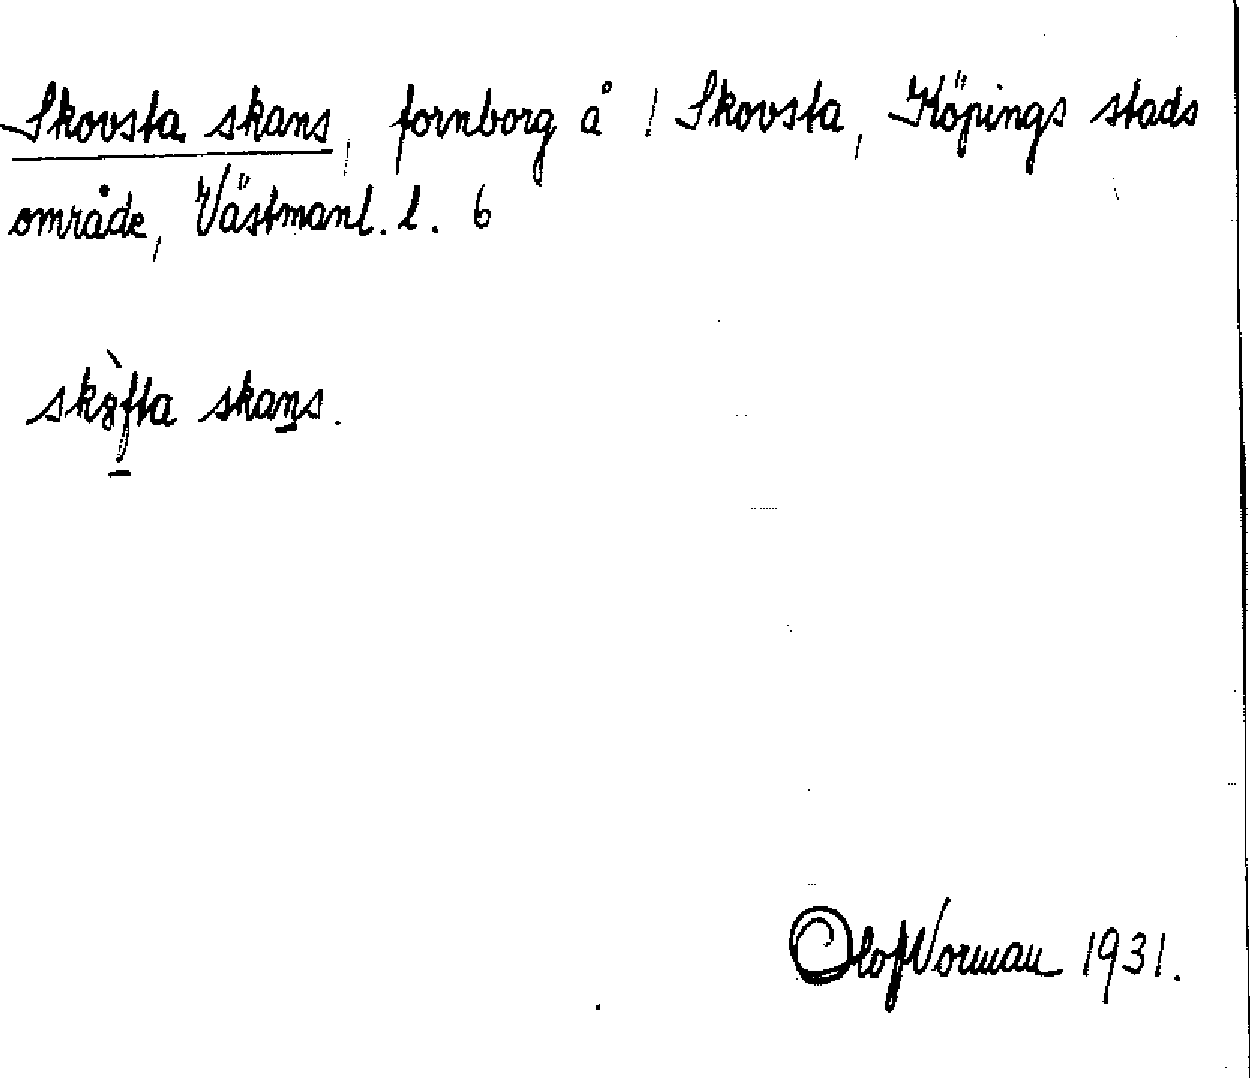 Skovsta skans, fornborg å / Skovsta, Köpings stads
område, Västmanl. l. 6
skȣ̀fta skans.
Olof Norman 1931.